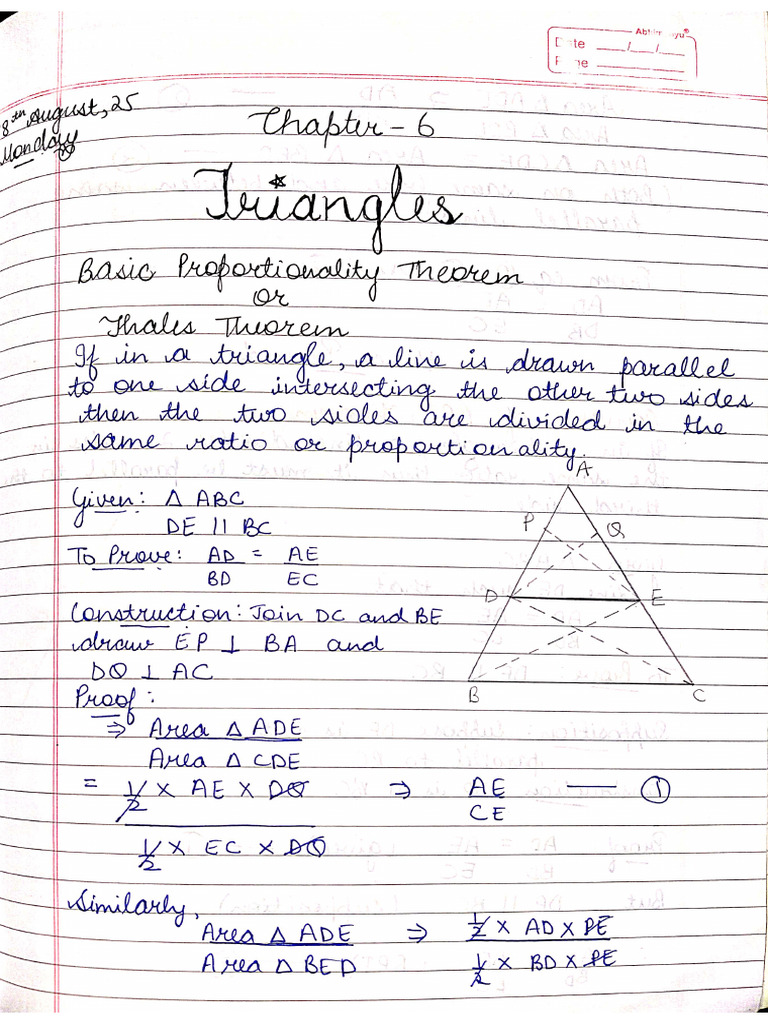 Abhimanyu®
Date ___/___/___
Page
8th August, 25
Monday
Chapter - 6
Triangles
Basic Proportionality Theorem
or
Thales Theorem
If in a triangle, a line is drawn parallel
to one side intersecting the other two sides
then the two sides are divided in the
same ratio or proportionality.
Given: Δ ABC
DE || BC
To Prove: AD/BD = AE/EC
Construction: Join DC and BE
draw EP ⊥ BA and
DQ ⊥ AC
A
P
Q
D
E
B
C
Proof:
⇒ Area Δ ADE
Area Δ CDE
= 1/2 × AE × DQ ⇒ AE — ①
CE
1/2 × EC × DQ
Similarly,
Area Δ ADE ⇒ 1/2 × AD × PE
Area Δ BED 1/2 × BD × PE